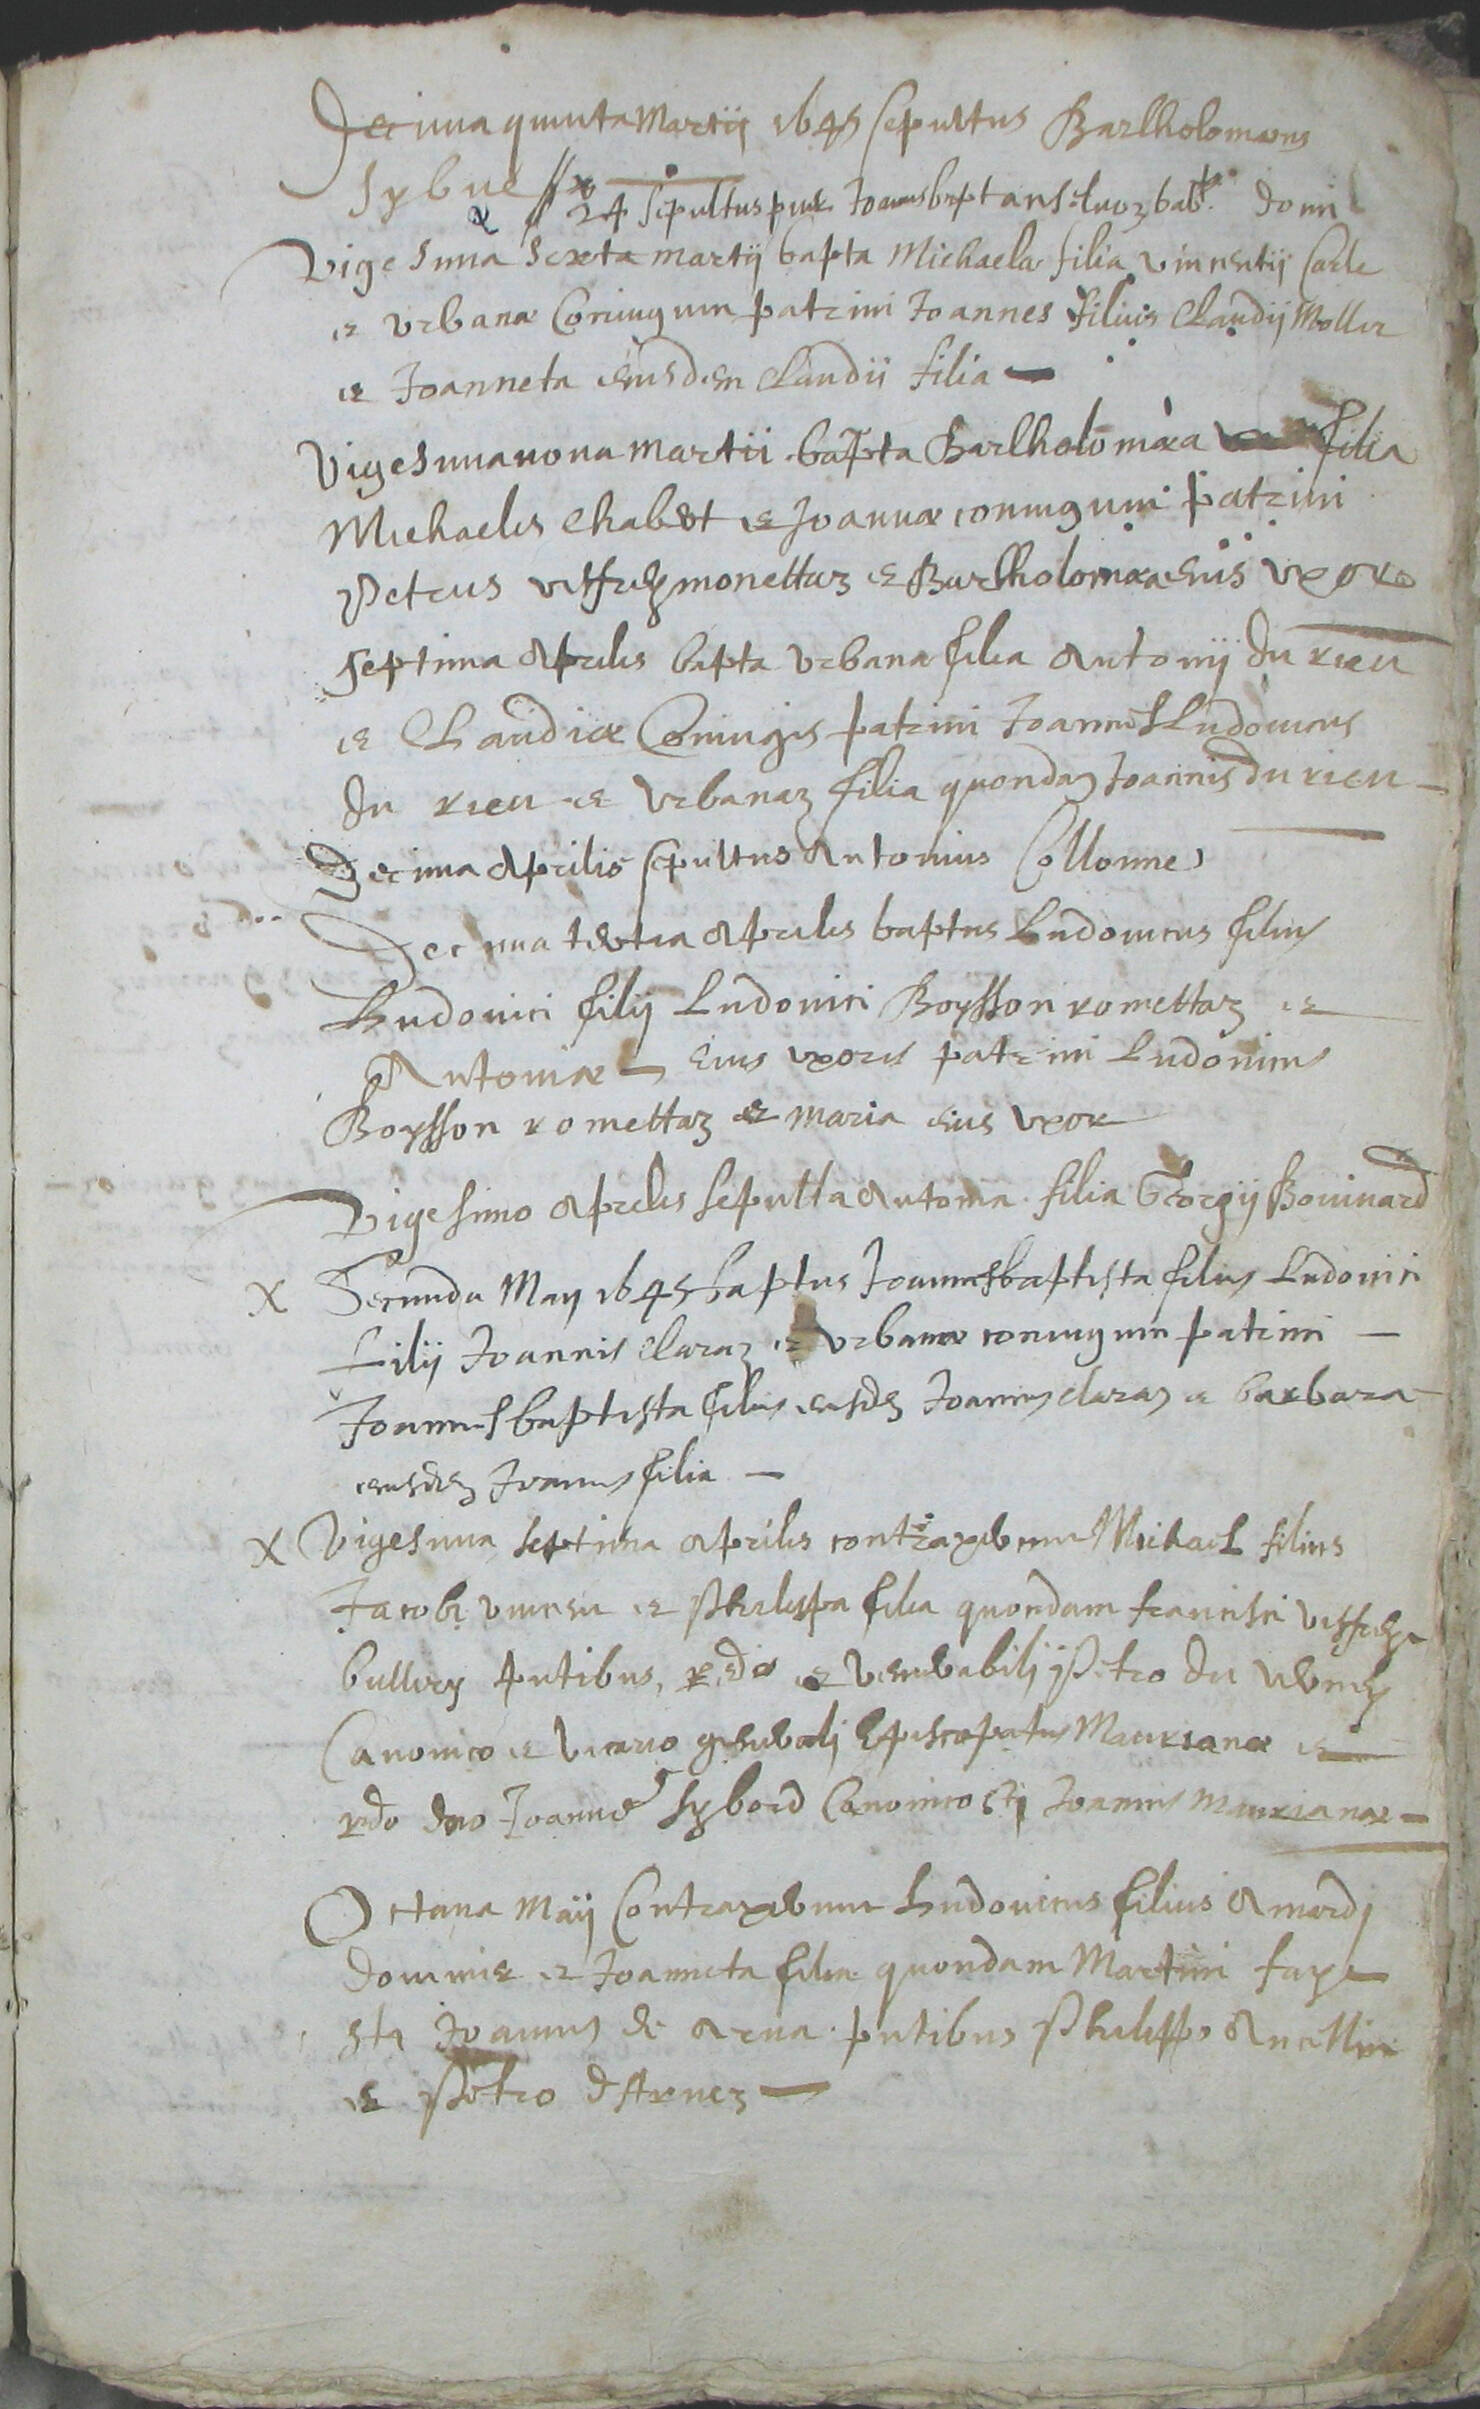 Decima quinta Martij 1645 sepultus Bartholomæus
Sybue // x 24 sepultus puer Joannes bapt domi
Vigesima sexta martij bapta Michaela filia vincentij Carle
et Vrbanæ Coniugum patrini Joannes filius Claudij Moller
et Joanneta eiusdem Claudii filia —
Vigesima nona martii bapta Bartholomæa filia
Michaelis Chabert et Joannæ coniugum patrini
Petrus viffrey monettaz et Bartholomæa eius vxor
septima Aprilis bapta Vrbana filia Antonij du rieu
et Claudiæ Coniugis patrini Joannes Ludouicus
du rieu et Vrbanaz filia quondaz Joannis du rieu —
Decima Aprilis sepultus Antonius Collonne
Decima tertia Aprilis baptus Ludouicus filius
Ludouici filij Ludouici Boysson romettaz et
Antoniæ — eius vxoris patrini Ludouicus
Boysson romettaz et maria eius vxor
Vigesimo Aprilis sepulta Antonia filia Georgij Bouinard
X Secunda May 1645 baptus Joannesbaptista filius Ludouici
filij Joannis claraz et Vrbanæ coniugum patrini —
Joannesbaptista filius eiusdez Joannis claraz et barbara
eiusdez Joannis filia —
X Vigesima septima Aprilis contraxerunt Michael filius
Jacobi vincen et Philippa filia quondam francisci viffrey
bullery pntibus, Rdo et venerabilij Petro du verney
Canonico et vicario generali Episcopatus Maurianæ et
rdo dno Joanne Sybord Canonico Sti Joannis Maurianæ —
Octaua Maij Contraxerunt Ludouicus filius Amedj
dominic et Joanneta filia quondam Martini faye
Sti Joannis de Arua pntibus Philippo Ancellin
et Petro d'Aruez —